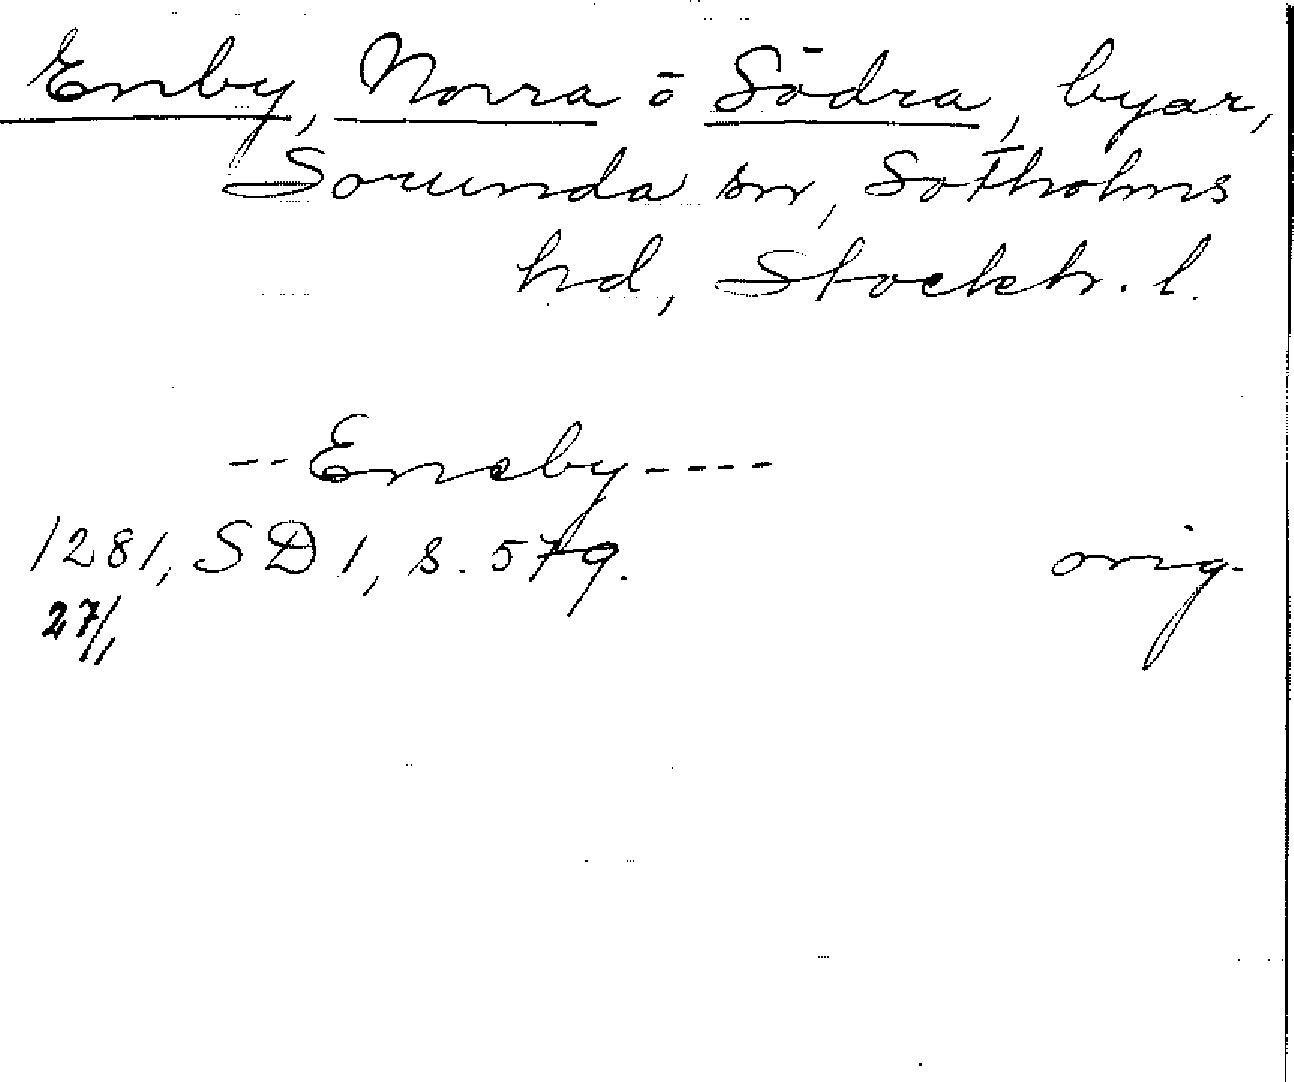 Enby, Norra o Södra, byar,
Sorunda sn, Sotholms
hd, Stockh. l.
--Eneby----
1281, SD 1, s. 579. orig.
27/1